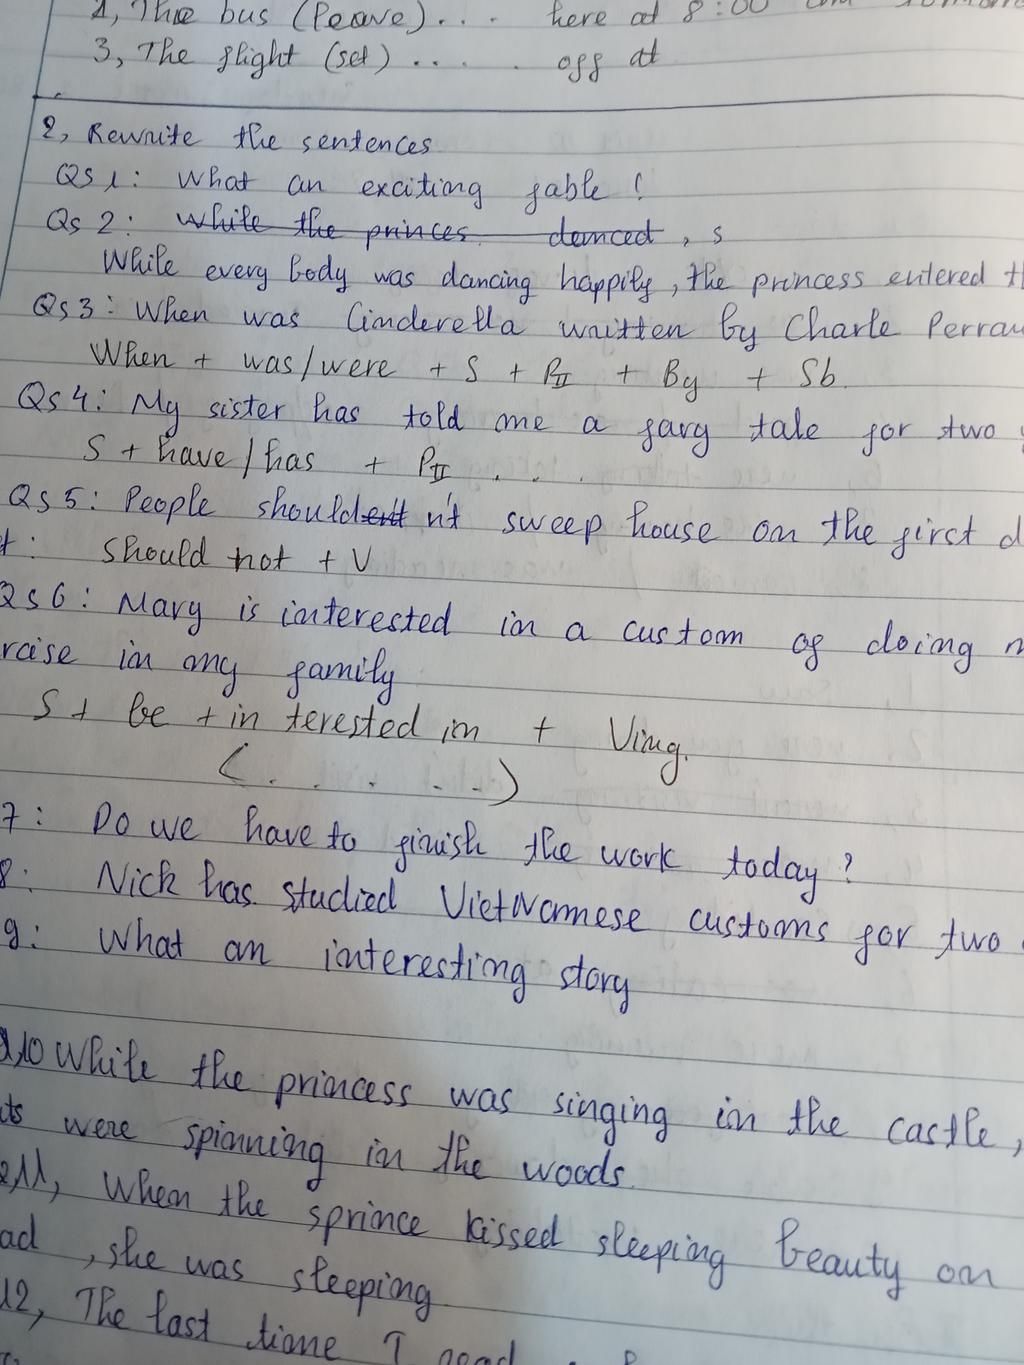 2, The bus (leave) . . . here at 8:00
3, The flight (set) . . . . . off at
2, Rewrite the sentences
Qs 1: What an exciting fable!
Qs 2: While the princes danced, s
While every body was dancing happily, the princess entered th
Qs 3: When was Cinderella written by Charle Perrau
When + was/were + S + PII + By + Sb.
Qs 4: My sister has told me a fary tale for two
S + have/has + PII . . .
Qs 5: People shouldn't sweep house on the first d
t: should not + V
Qs 6: Mary is interested in a custom of doing
rcise in my family
S + be + in terested in + Ving.
(. . . . .)
7: Do we have to finish the work today?
8: Nick has studied Vietnamese customs for two
9: What an interesting story
10 While the princess was singing in the castle,
ts were spinning in the woods.
11, When the sprince kissed sleeping beauty on
ad, she was sleeping
12, The last time I